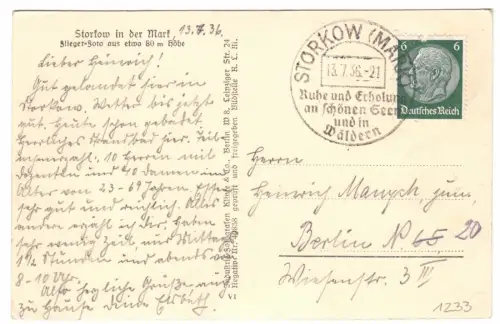 Storkow in der Mark
Flieger-Foto aus etwa 80 m Höhe
13.7.36.
Lieber Heinrich!
Gut gelandet hier in
Storkow. Wetter bis jetzt
gut. Heute schon gebadet
Herrliches Strandbad hier. Teil-
nehmerzahl. 10 Herren mit
Dozenten und 40 Damen im
Alter von 23 - 69 Jahren. Essen
sehr gut und reichlich. Alles
andere erzähl ich dir. Haben
sehr wenig Zeit, nur Mittag
1¼ Stunden und abends von
8-10 Uhr.
Also herzliche Grüße auch
zu Hause deine Elsbeth.
Industrie-Fotografen Klinke & Co., Berlin W 8, Leipziger Str. 24
geprüft und freigegeben R. L. M.
VI
STORKOW (MARK)
13.7.36.-21
Ruhe und Erholung
an schönen Seen
und in
Wäldern
6 6
Deutsches Reich
Herrn
Heinrich jun.
Berlin N 65 20
Wiesenstr. 3 III
1233